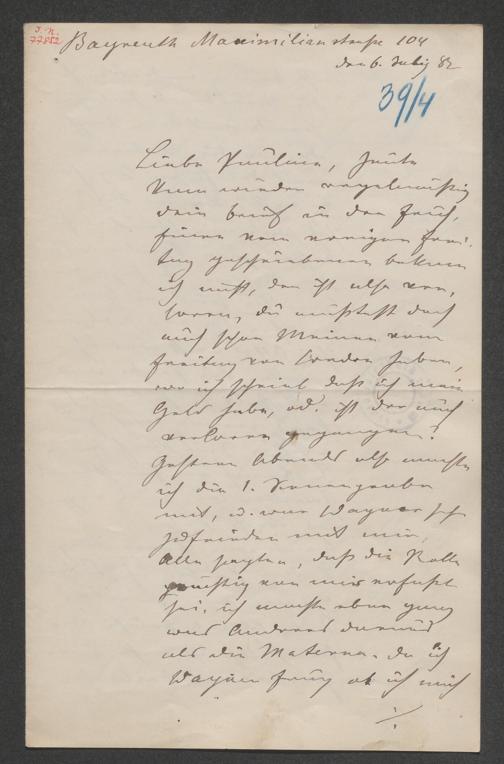 J. N.
77852
Bayreuth Maximilianstraße 104
den 6. July 82
39/4
Liebe Pauline, heute
kam wieder regelmäßig
dein Brief in der Früh,
einen vom vorigen Frei-
tag geschriebenen bekam
ich nicht, der ist also ver-
loren, du mußtest doch
auch schon Meinen vom
Freitag von London haben,
wo ich schrieb daß ich mein
Geld habe, od. ist der auch
verloren gegangen?
Gestern Abends also machte
ich die 1. Scenenprobe
mit, u. war Wagner sehr
zufrieden mit mir,
Alle sagten, daß die Rolle
günstig von mir erfaßt
sei, ich mache eben ganz
was Anderes daraus
als die Materna. da ich
Wagner frug ob ich mich
./.